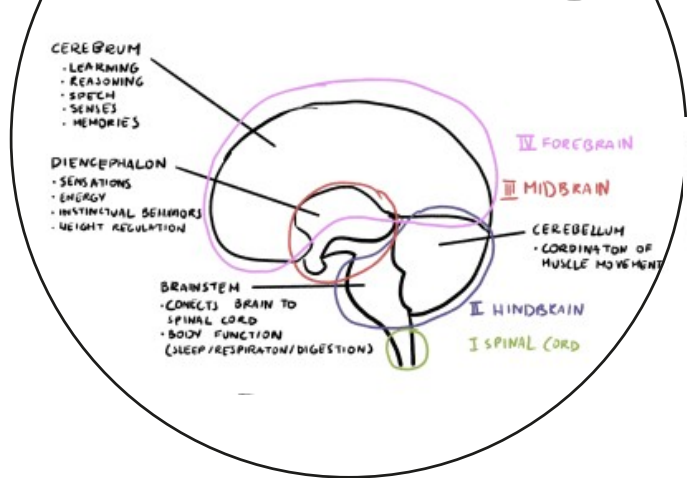 CEREBRUM
· LEARNING
· REASONING
· SPECH
· SENSES
· MEMORIES
DIENCEPHALON
· SENSATIONS
· ENERGY
· INSTINCTUAL BEHAVIORS
· WEIGHT REGULATION
BRAINSTEM
· CONECTS BRAIN TO
SPINAL CORD
· BODY FUNCTION
(SLEEP/RESPIRATON/DIGESTION)
IV FOREBRAIN
III MIDBRAIN
CEREBELLUM
· CORDINATON OF
MUSCLE MOVEMENT
II HINDBRAIN
I SPINAL CORD